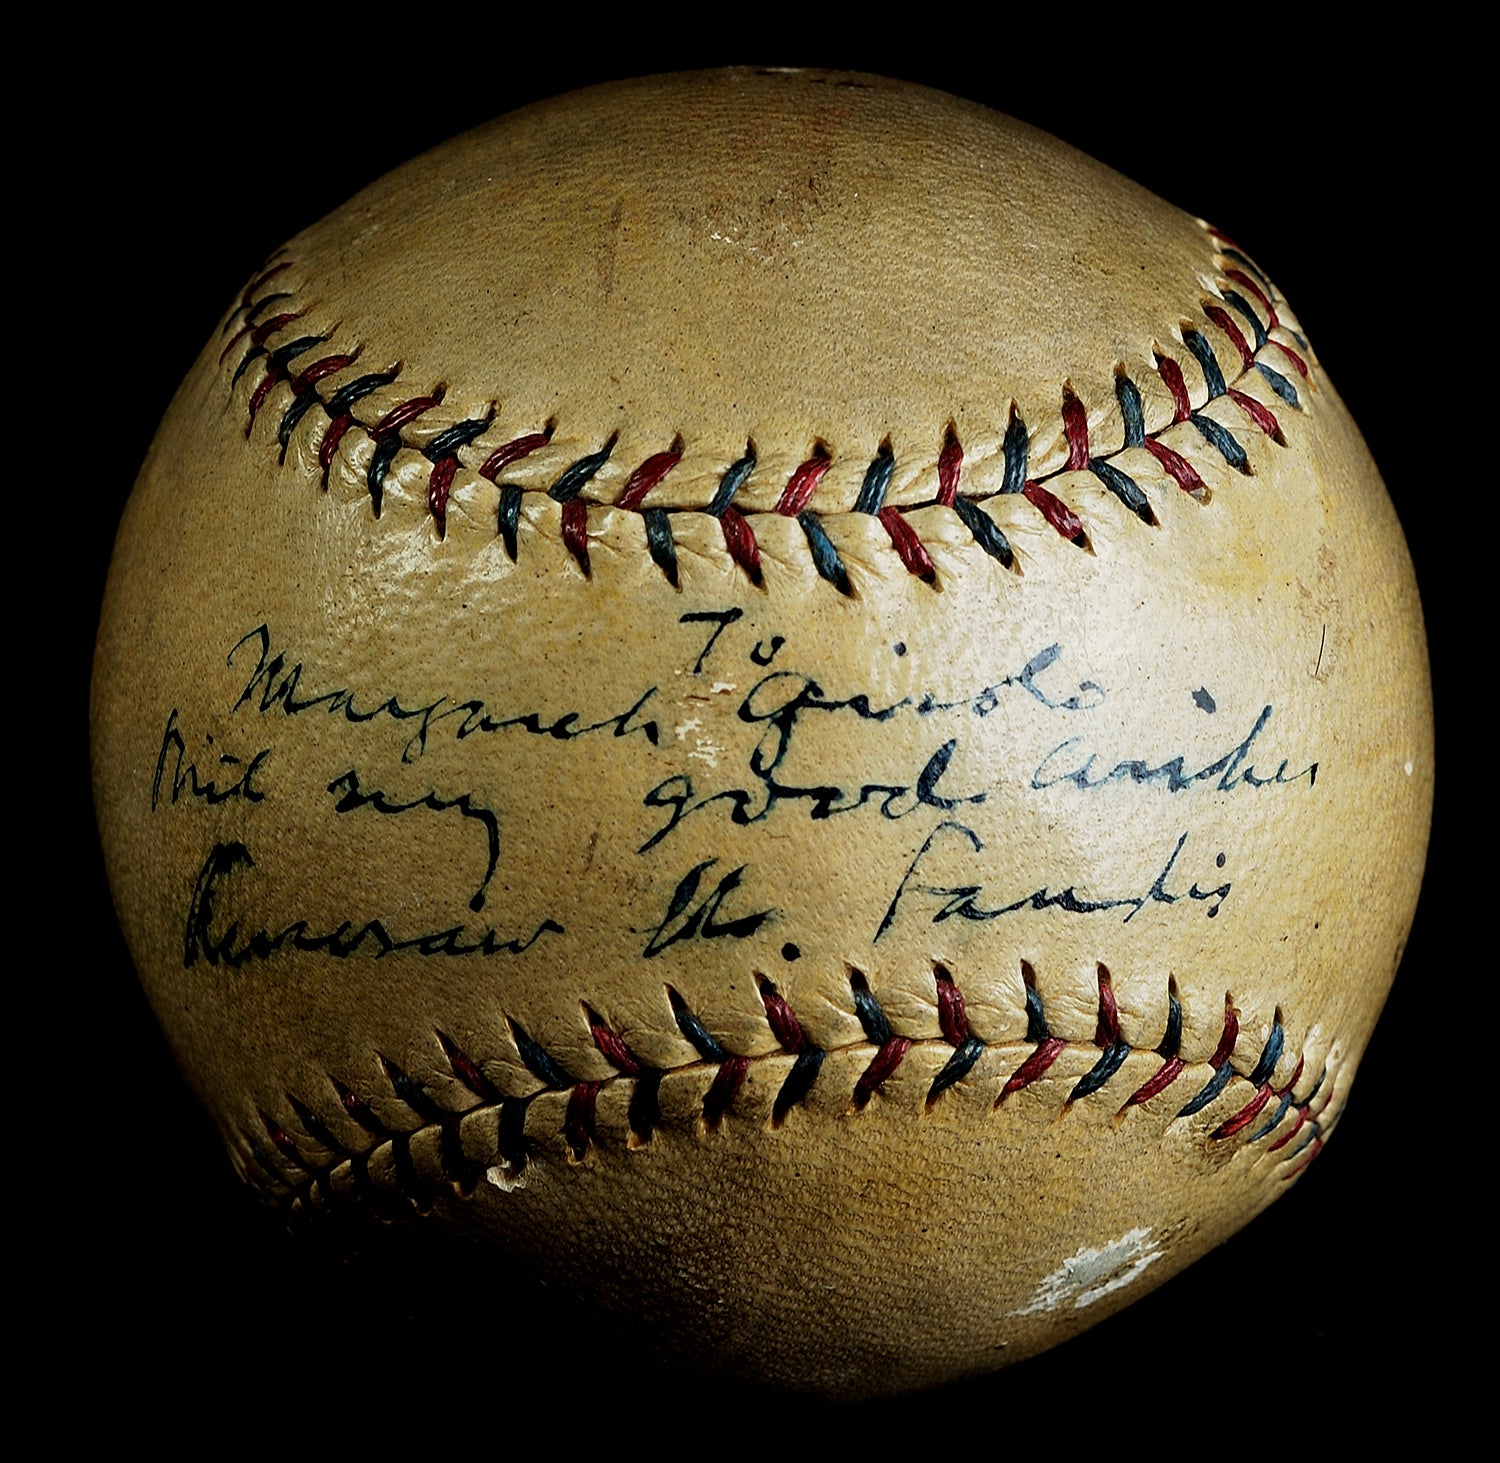 To
Margaret
With my good wishes
Kenesaw M. Landis